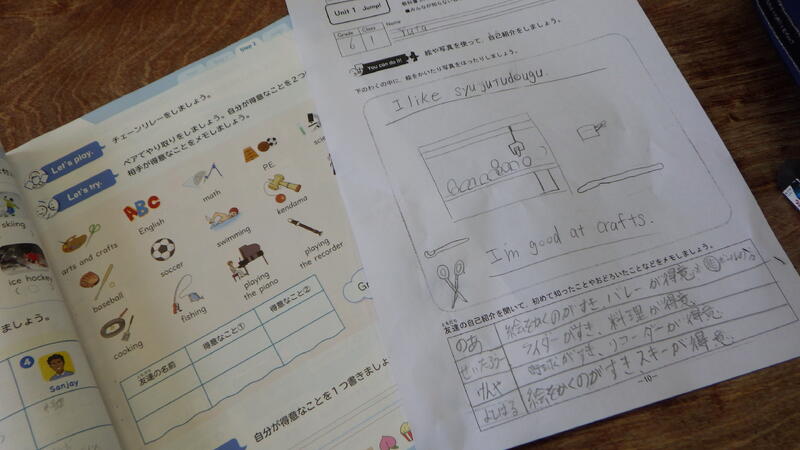 Step 2
チェーンリレーをしましょう。
Let's play.
ペアでやり取りをしましょう。自分が得意なことを2つ
相手が得意なことをメモしましょう。
Let's try.
ABC
English
math
P.E.
arts and crafts
soccer
swimming
kendama
baseball
fishing
playing
the piano
playing
the recorder
cooking
skiing
ice hockey
友達の名前
得意なこと①
得意なこと②
4
Sanjay
自分が得意なことを1つ書きましょ
Unit 1 Jump!
Grade
Class
Name
6
1
Yuta
You can do it!
絵や写真を使って、自己紹介をしましょう。
下のわくの中に、絵をかいたり写真をはったりしましょう。
I like syujutudougu.
I'm good at crafts.
友達の自己紹介を聞いて、初めて知ったことやおどろいたことなどをメモしましょう。
のあ
絵をかくのがすき バレーが得意
せいたろう
ライダーがすき、料理が得意
けんや
野球がすき、リコーダーが得意
よしはる
絵をかくのがすき スキーが得意
-10-